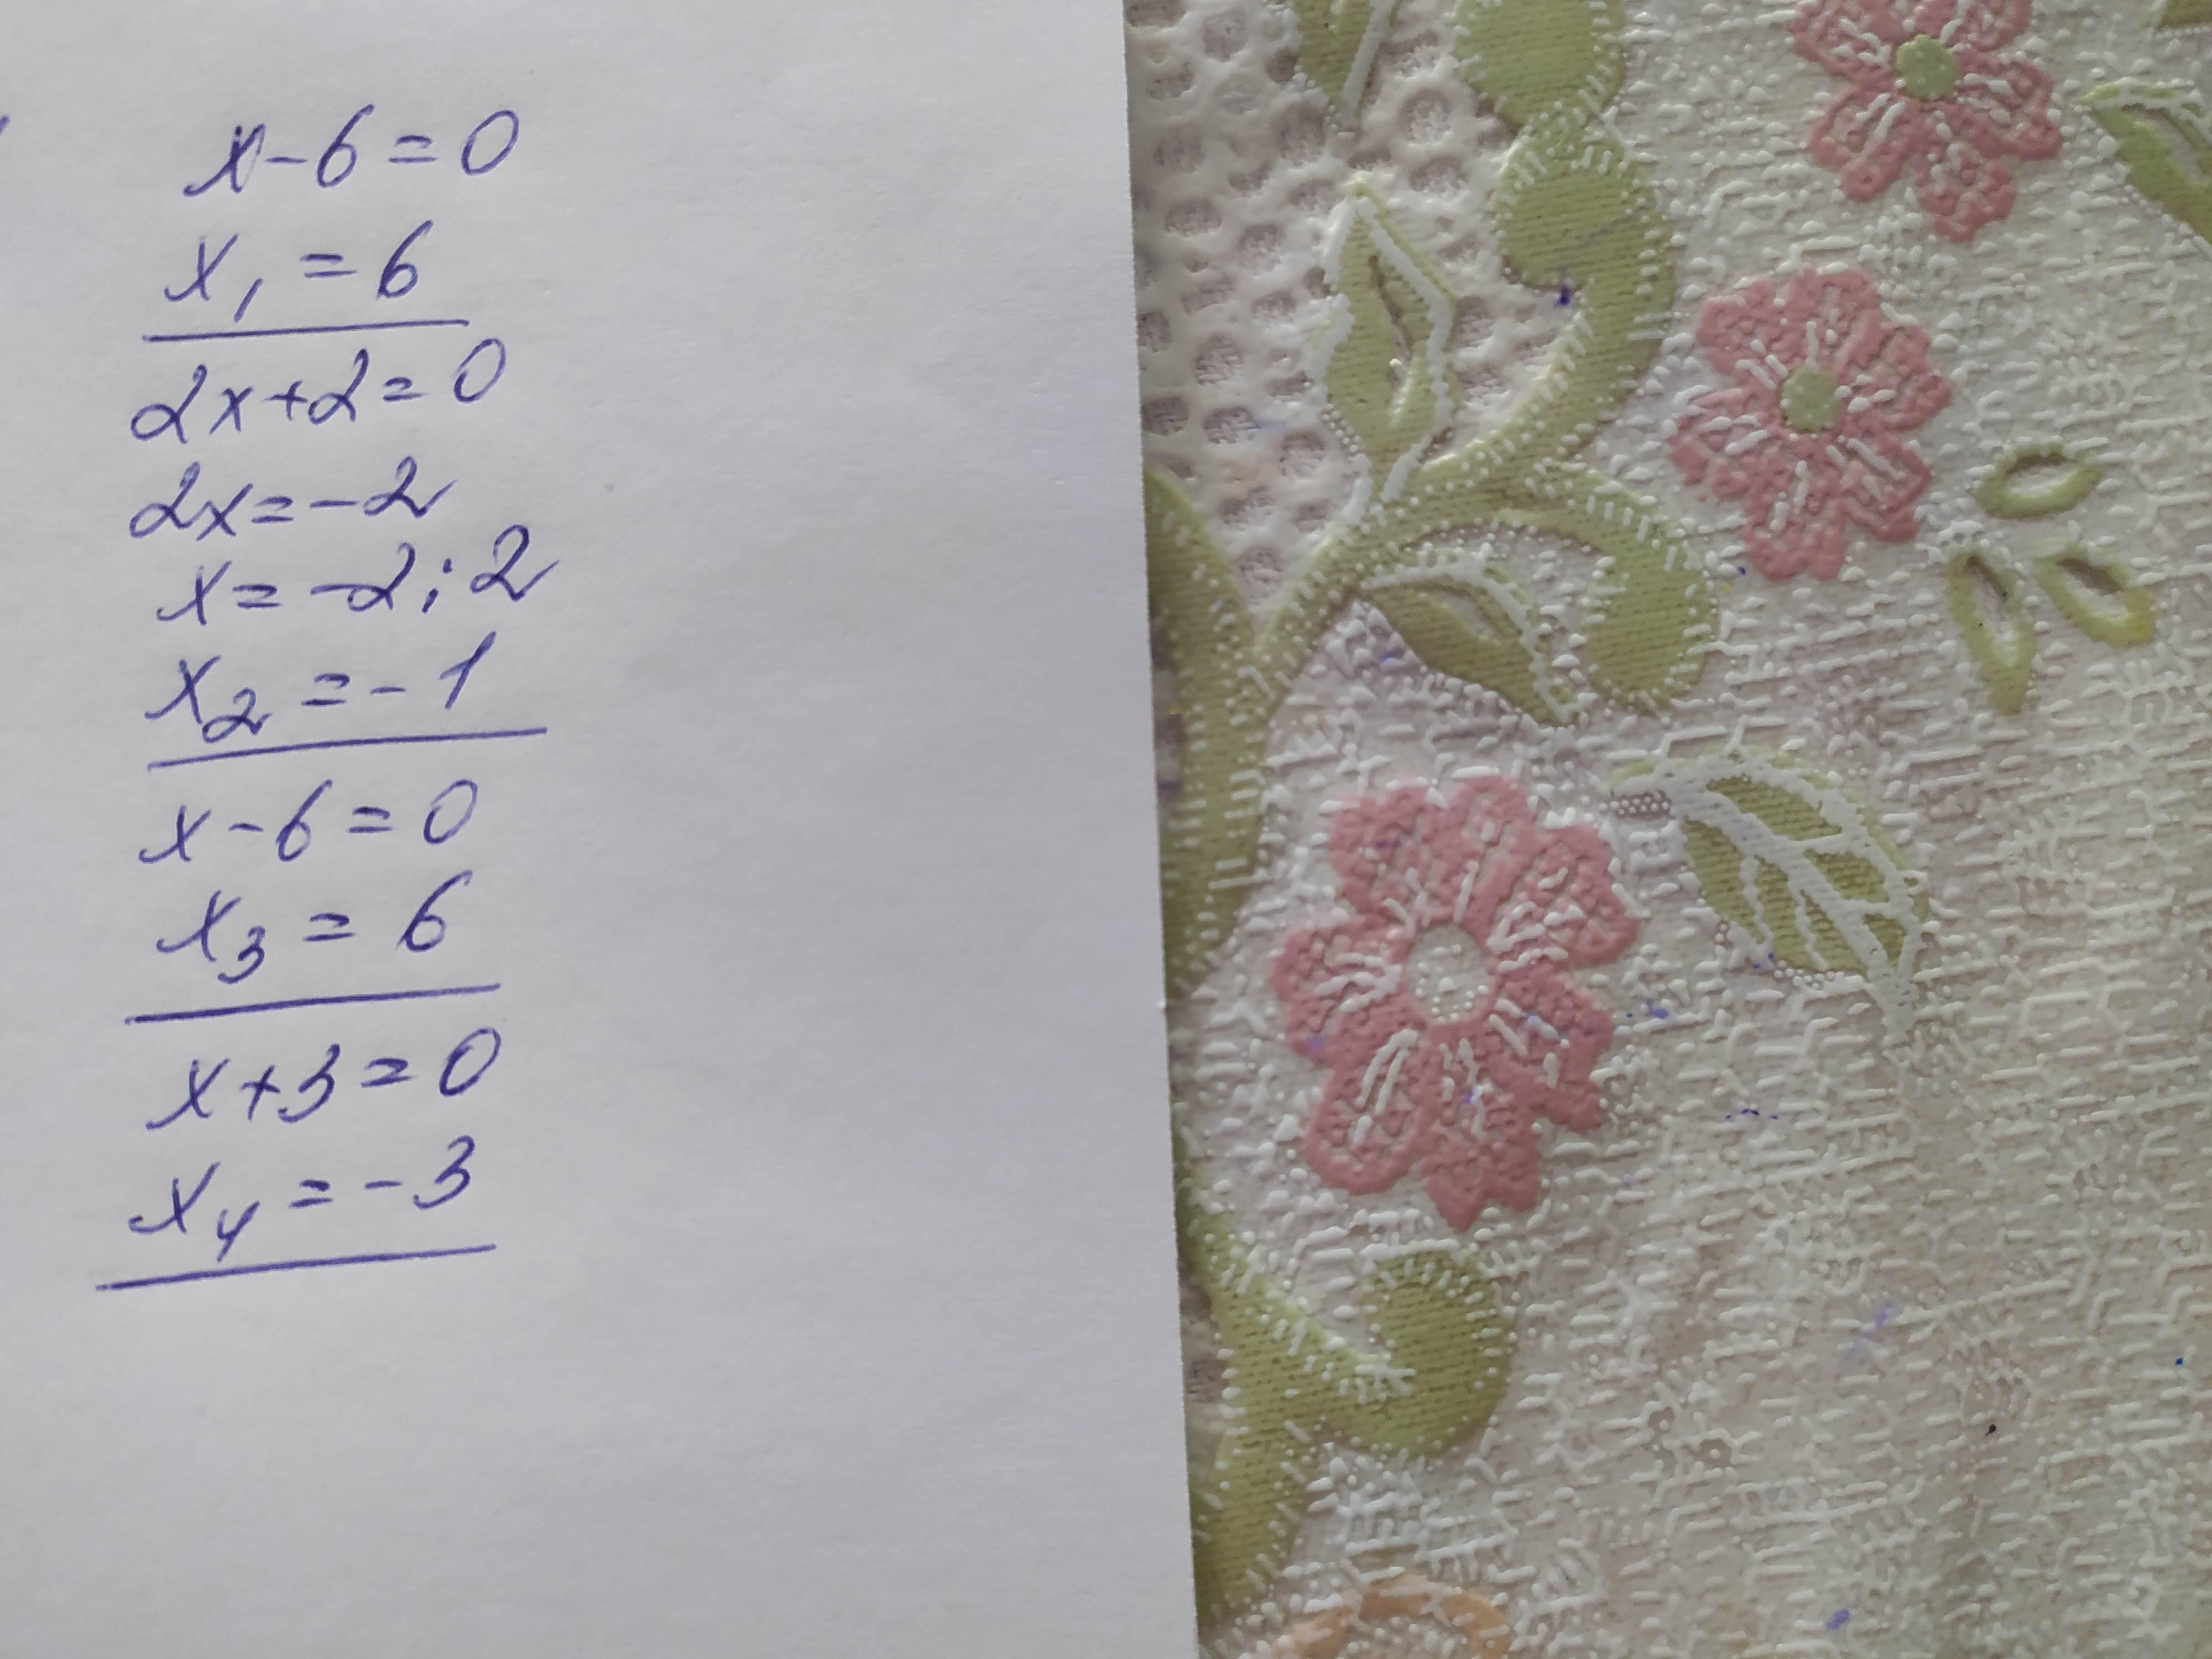 x-6=0
x₁=6
2x+2=0
2x=-2
x=-2:2
x₂=-1
x-6=0
x₃=6
x+3=0
x₄=-3